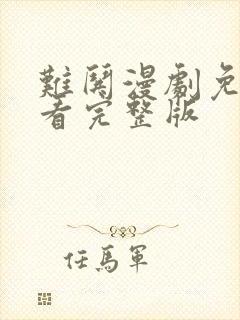 難哄漫劇免
看完整版
任馬軍